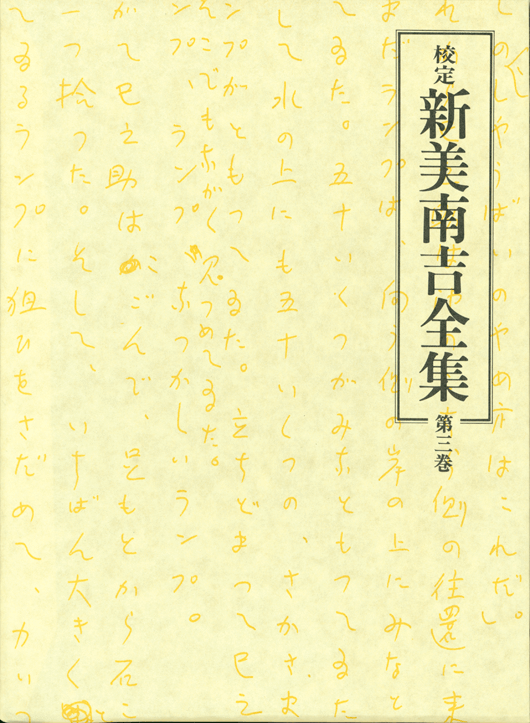 校定
新美南吉全集
第三巻
しのしやうばいのやめ方はこれだ。
う側の往還に来
まだランプは、向う側の岸の上にみなと
てゐた。五十いくつがみなともつてゐた
して水の上にも五十いくつの、さかさま
ンプがともつてゐた。立ちどまつて巳之
そこでもながく見つめてゐた。
ンプ、ランプ、なつかしいランプ。
がて巳之助はかごんで、足もとから石こ
一つ拾つた。そして、いちばん大きく
てゐるランプに狙ひをさだめて、力いつ